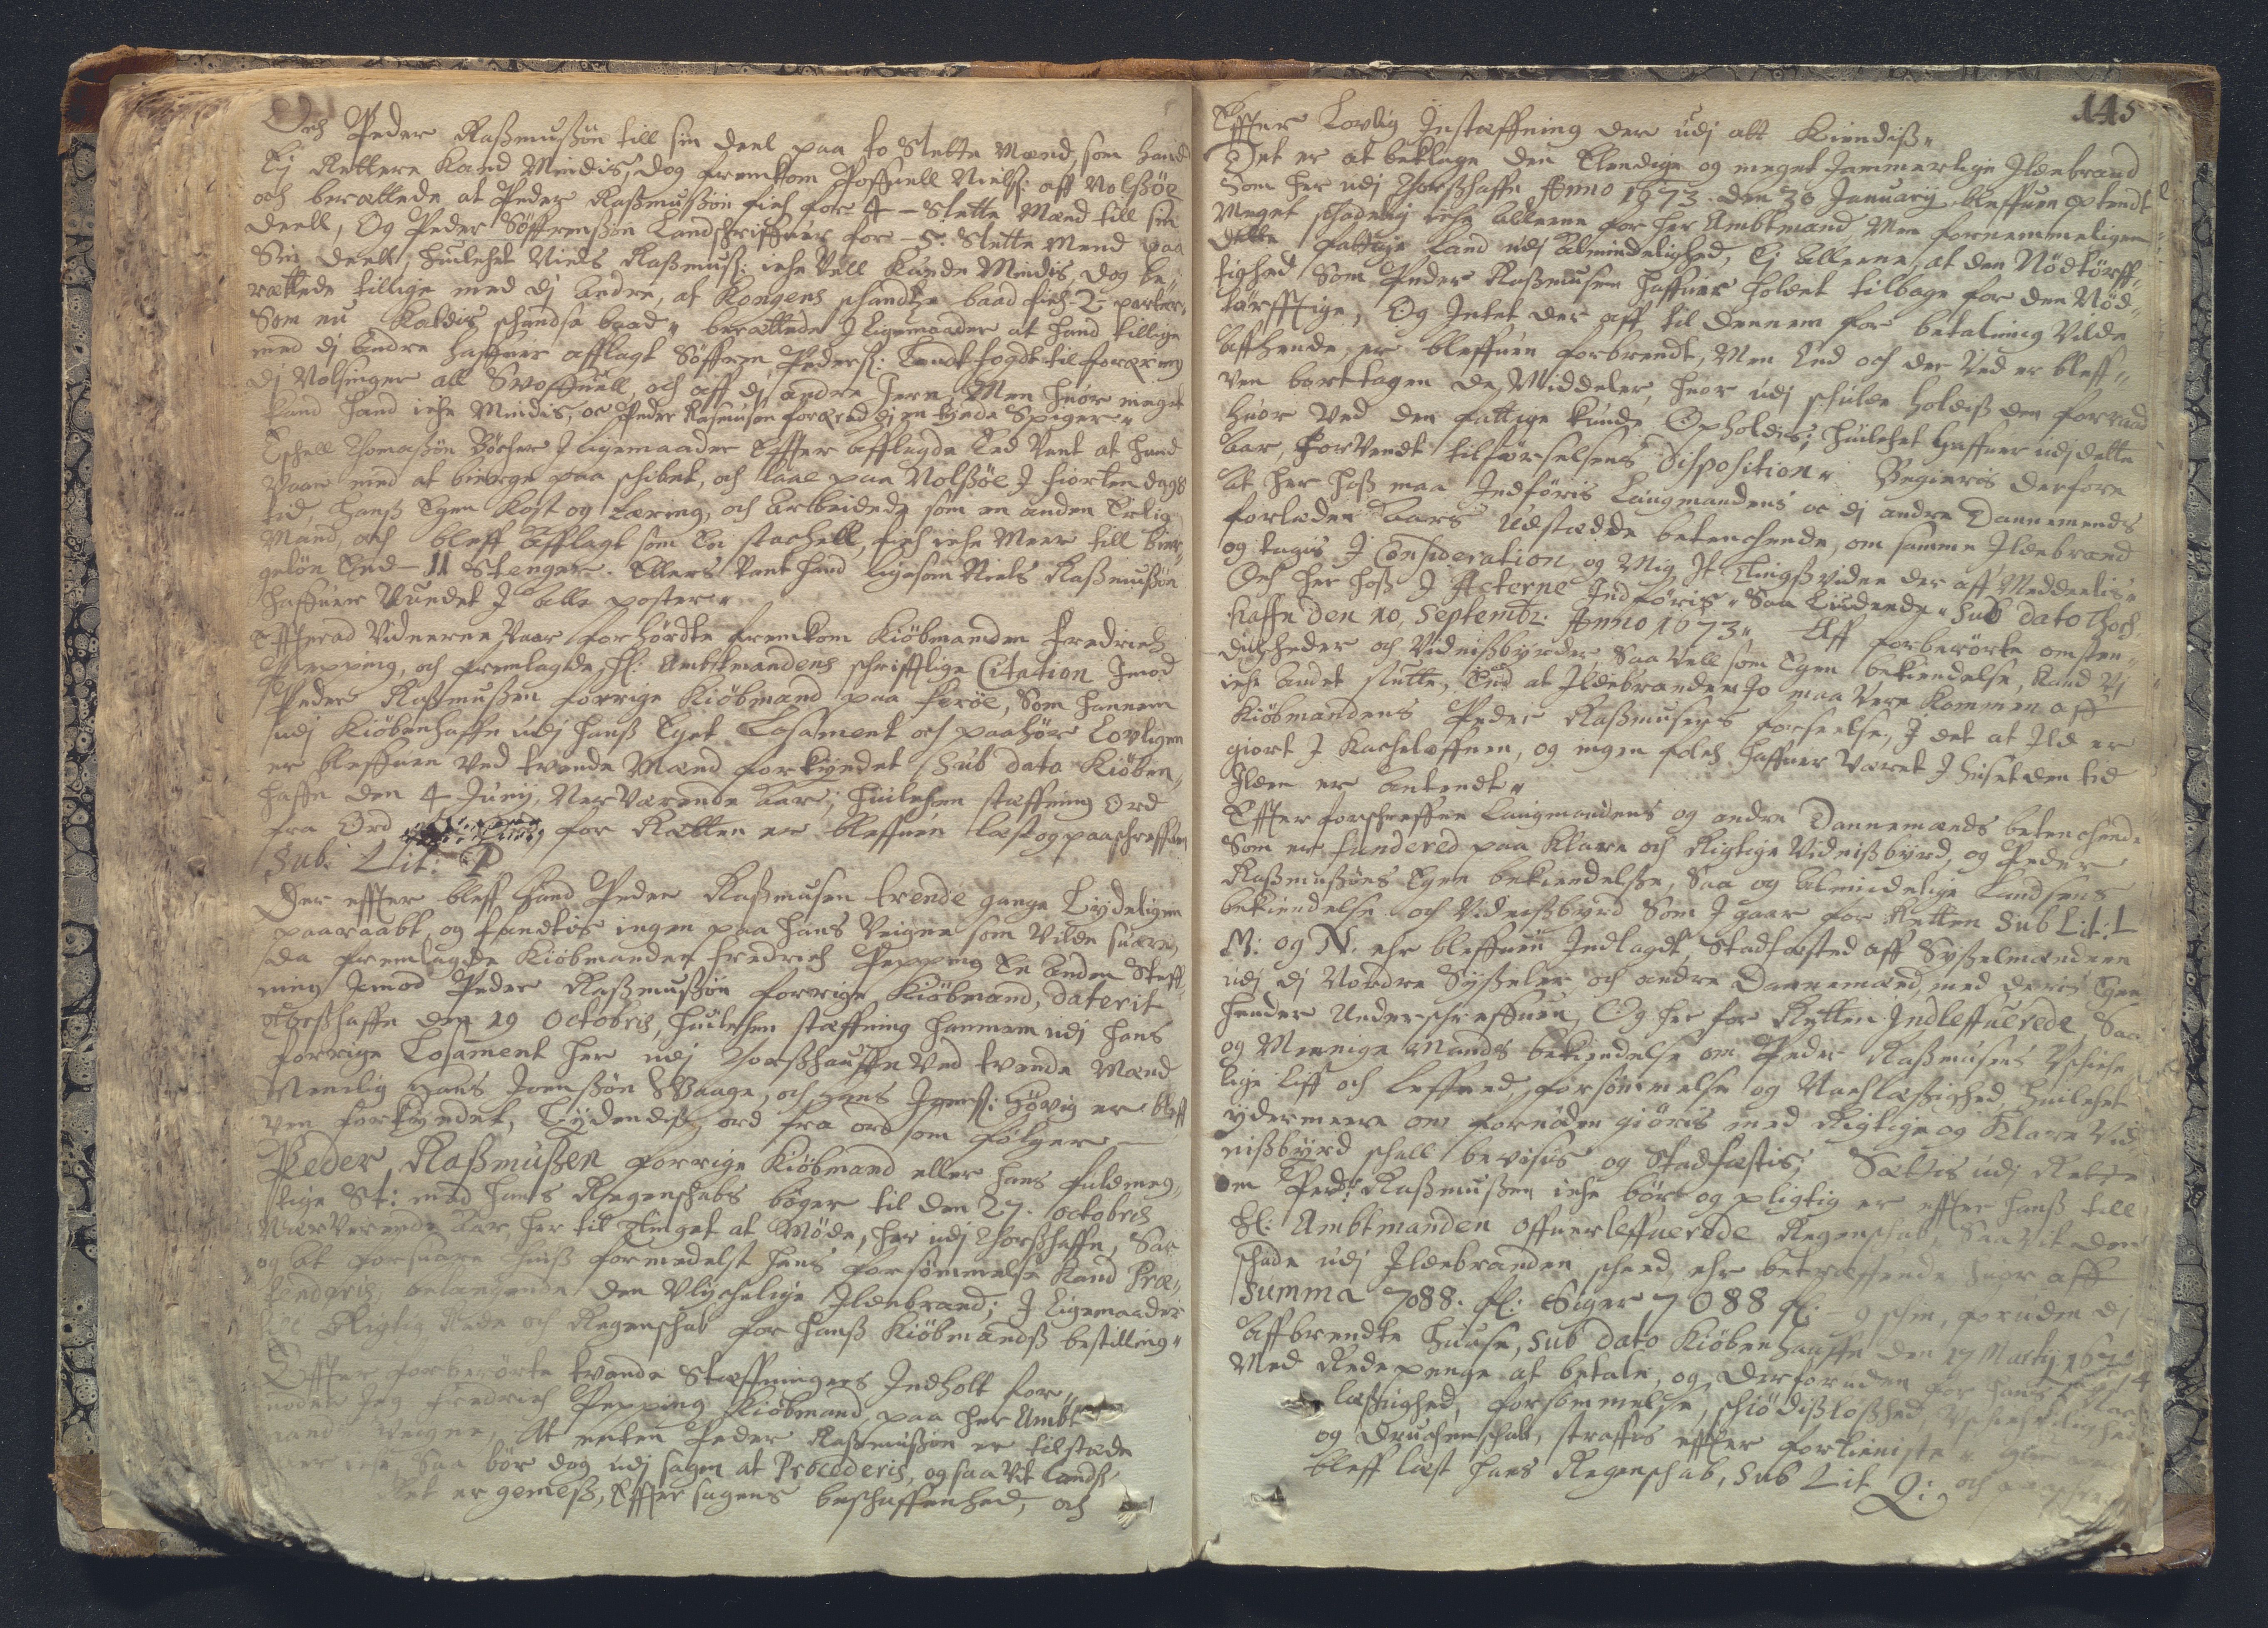 Och Peder Raßmußøn till sin deel paa to Slette Mænd, som hand
Ej Rettere Kand Mindis, dog fremkom Poffuell Nielß: aff Nolßøe
och berættede at Peder Raßmußøn fich for 4 - Slette Mænd till sin
deell, Og Peder Søffrenßøn Landschriffuer for - 5. Slette Mend paa
Sin deell, huilchet Niels Raßmuß: iche Vell Kunde Mindis, dog be
rættede tillige med dj andre, at Kongens schandtze baad fich - 2 - parter,
Som nu Kaldis schandse baad " berættede J ligemaader at hand tillige
med dj andre haffuer afflagt Søffren Pederß: Landtfogdt til foræring
dj Nolsinger all Svoffuell, och aff dj andre Jern, Men huor meget
kand hand iche Mindis, oc Peder Rasmusøn foræred hj en tynde Spiger "
Eschell Thomaßøn Bøcher J ligemaader Effter afflagde Eed Vant at hand
Vaar med at bierge paa schibet, och laae paa Nolßøe J fiorten dags
tid, Hanß Egen Kost og tæring, och arbeidede som en anden Erlig
Mand, och bleff afflagt som En stachell, fich iche Meer till bier,,
geløn End - 11 Stenger. Ellers Vant hand ligesom Niels Raßmußøn
haffuer Vundet J alle poster "
Effterad Vidnerne Vaar forhørdte fremkom Kiøbmanden Fredrich
Pepping, och fremlagde Hl: Ambtmandens schrifftlige Citation Jmod
Peder Raßmußen forrige Kiøbmand paa Ferøe, Som hannem
udj Kiøbenhaffn udj hanß Eget Losament och paahør Lovligen
er bleffuen Ved tvende Mænd forkyndet Sub dato Kiøben,,
haffn den 4 Junij, NerVærende Aar; huilchen stæffning Ord
fra Ord for Retten er bleffuen læst og paaschreffven
Sub. Lit: P
Der effter bleff hand Peder Raßmusen trende gange Lydeligen
paaraabt, og fandtis ingen paa hans Veigne som Vilde suare,
da fremlagde Kiøbmanden Fredrich Pepping En anden Steff,,
ning Jmod Peder Raßmußøn forrige Kiøbmand, daterit
Thorßhaffn den 19 Octobris, huilchen stæffning hannem udj hans
forrige Losament her udj Thorßhauffn Ved tvende Mænd
Nemlig Hans Joenßøn Waage, och Jens Joenß: Høvig er bleff
ven forkyndet, Lydendiß ord fra ord som følger -
Peder Raßmußen forrige Kiøbmand eller hans fuldmeg,,
tige St: med hans Regenschabs bøger til den 27. octobris
NærVerende Aar, her til Tinget at Møde, her udj Thorßhaffn, Saa
og at forsuare huiß formedelst hans forsømmelse Kand Præ,,
tenderis, belangende den Vlychelige Jldebrand; J ligemaader
Rigtig Rede och Regenschab for hanß Kiøbmandß bestilling "
Effter forberørte tvende Stæffningers Indholt for,,
moder Jeg Fredrich Pepping Kiøbmand paa her Ambt
mand Veigne, At enten Peder Raßmußøn er tilstæde
eller iche, Saa bør dog udj sagen at Procederis, og saa Vit Landß
Ret er gemeß, Effter sagens beschaffenhed, och

145
Effter Lovlig Instæffning der udj alt Kiendiß "
Det er at beklage den Elendige og meget Jammerlige Jldebrand
Som her udj Thorßhaffn Anno 1673. den 30 January bleffuen optendt
Meget schadelig iche alleene for her Ambtmand Men fornemmeligen
dette fattige Land udj Almindelighed, Ej alleene, at den Nødtørff,,
tighed Som Peder Raßmusen haffuer holdet tilbage for den Nød,,
tørfftige, Og Intet der aff til dennem for betaling Vilde
affhende, er bleffuen forbrendt, Men End och der Ved er bleff,,
ven borttagen de Middeler, huor udj schulde holdiß den forraad
huor Ved den fattige Kunde Opholdis; huilchet haffuer udj dette
Aar, forVendt tilførselsens Disposition " Begieris derfore
At her hoß maa Indføris Laugmandens oc dj andre Dannemends
forleden Aars Udstædde betenchende, om samme Jldebrand
og tagis J Consideration, og Mig It Tingßvidne der aff Meddeelis "
Och her hoß J Acterne Indføris " Saa Liudende " Sub dato Thors
haffn den 10. Septembr: Anno 1673 " Aff forberørte omsten,,
digheder och Vidnißbyrder, Saa Vell som Egen bekiendelse, Kand Vj
iche andet slutte, End at Jldebranden Jo maa Vere Kommen aff
Kiøbmandens Peder Raßmusens forseelse, J det at Jld er
giort J Kachelaffnen, og ingen folch haffuer Været J huset den tid
Jlden er antendt "
Effter forschreffne Laugmandens og andre Dannemænds betenchende
Som er funderet paa Klare och Rigtige Vidnißbyrd, og Peder
Raßmußøns Egen bekiendelße, Saa og Almindelige Landsens
bekiendelse och Vidnißbyrd Som J gaar for Retten Sub Lit: L
M: og N: ehr bleffuen Indlagdt, Stadfæsted aff Syßelmændenn
udj dj Nordre Syßeler och andre Dannemænd, med deris Egne
hender Underschreffuen, Og her for Retten Indleffuerede Saa
og Mennige Mands bekiendelse om Peder Raßmusens Vschiche
lige Liff och leffned, forsømmelse og Vachtløshed, huilchet
ydermeere om fornøden giøris med Rigtige og Klare Vid,,
nißbyrd schall bevisis og Stadfæstis, Sættis udj Rette
om Ped: Raßmußen iche bør og pligtig er effter hanß till
Hl: Ambtmanden offuerleffuerede Regenschab, Saa Vit den
schade udj Jldebranden scheed, ehr betreffende huor aff
Summa 7088. gl: Siger 7088 gl. 9 schin, foruden dj
Affbrendte huuse, Sub dato Kiøbenhauffn den 17 Martij 1674
Med Rede penge at betale, og derforuden for hans
læßighed, forsømmelse, schiødißløßhed
og Druchenschab, straffis effter fortieniste "
bleff læst hans Regenschab, Sub Lit. Q: och